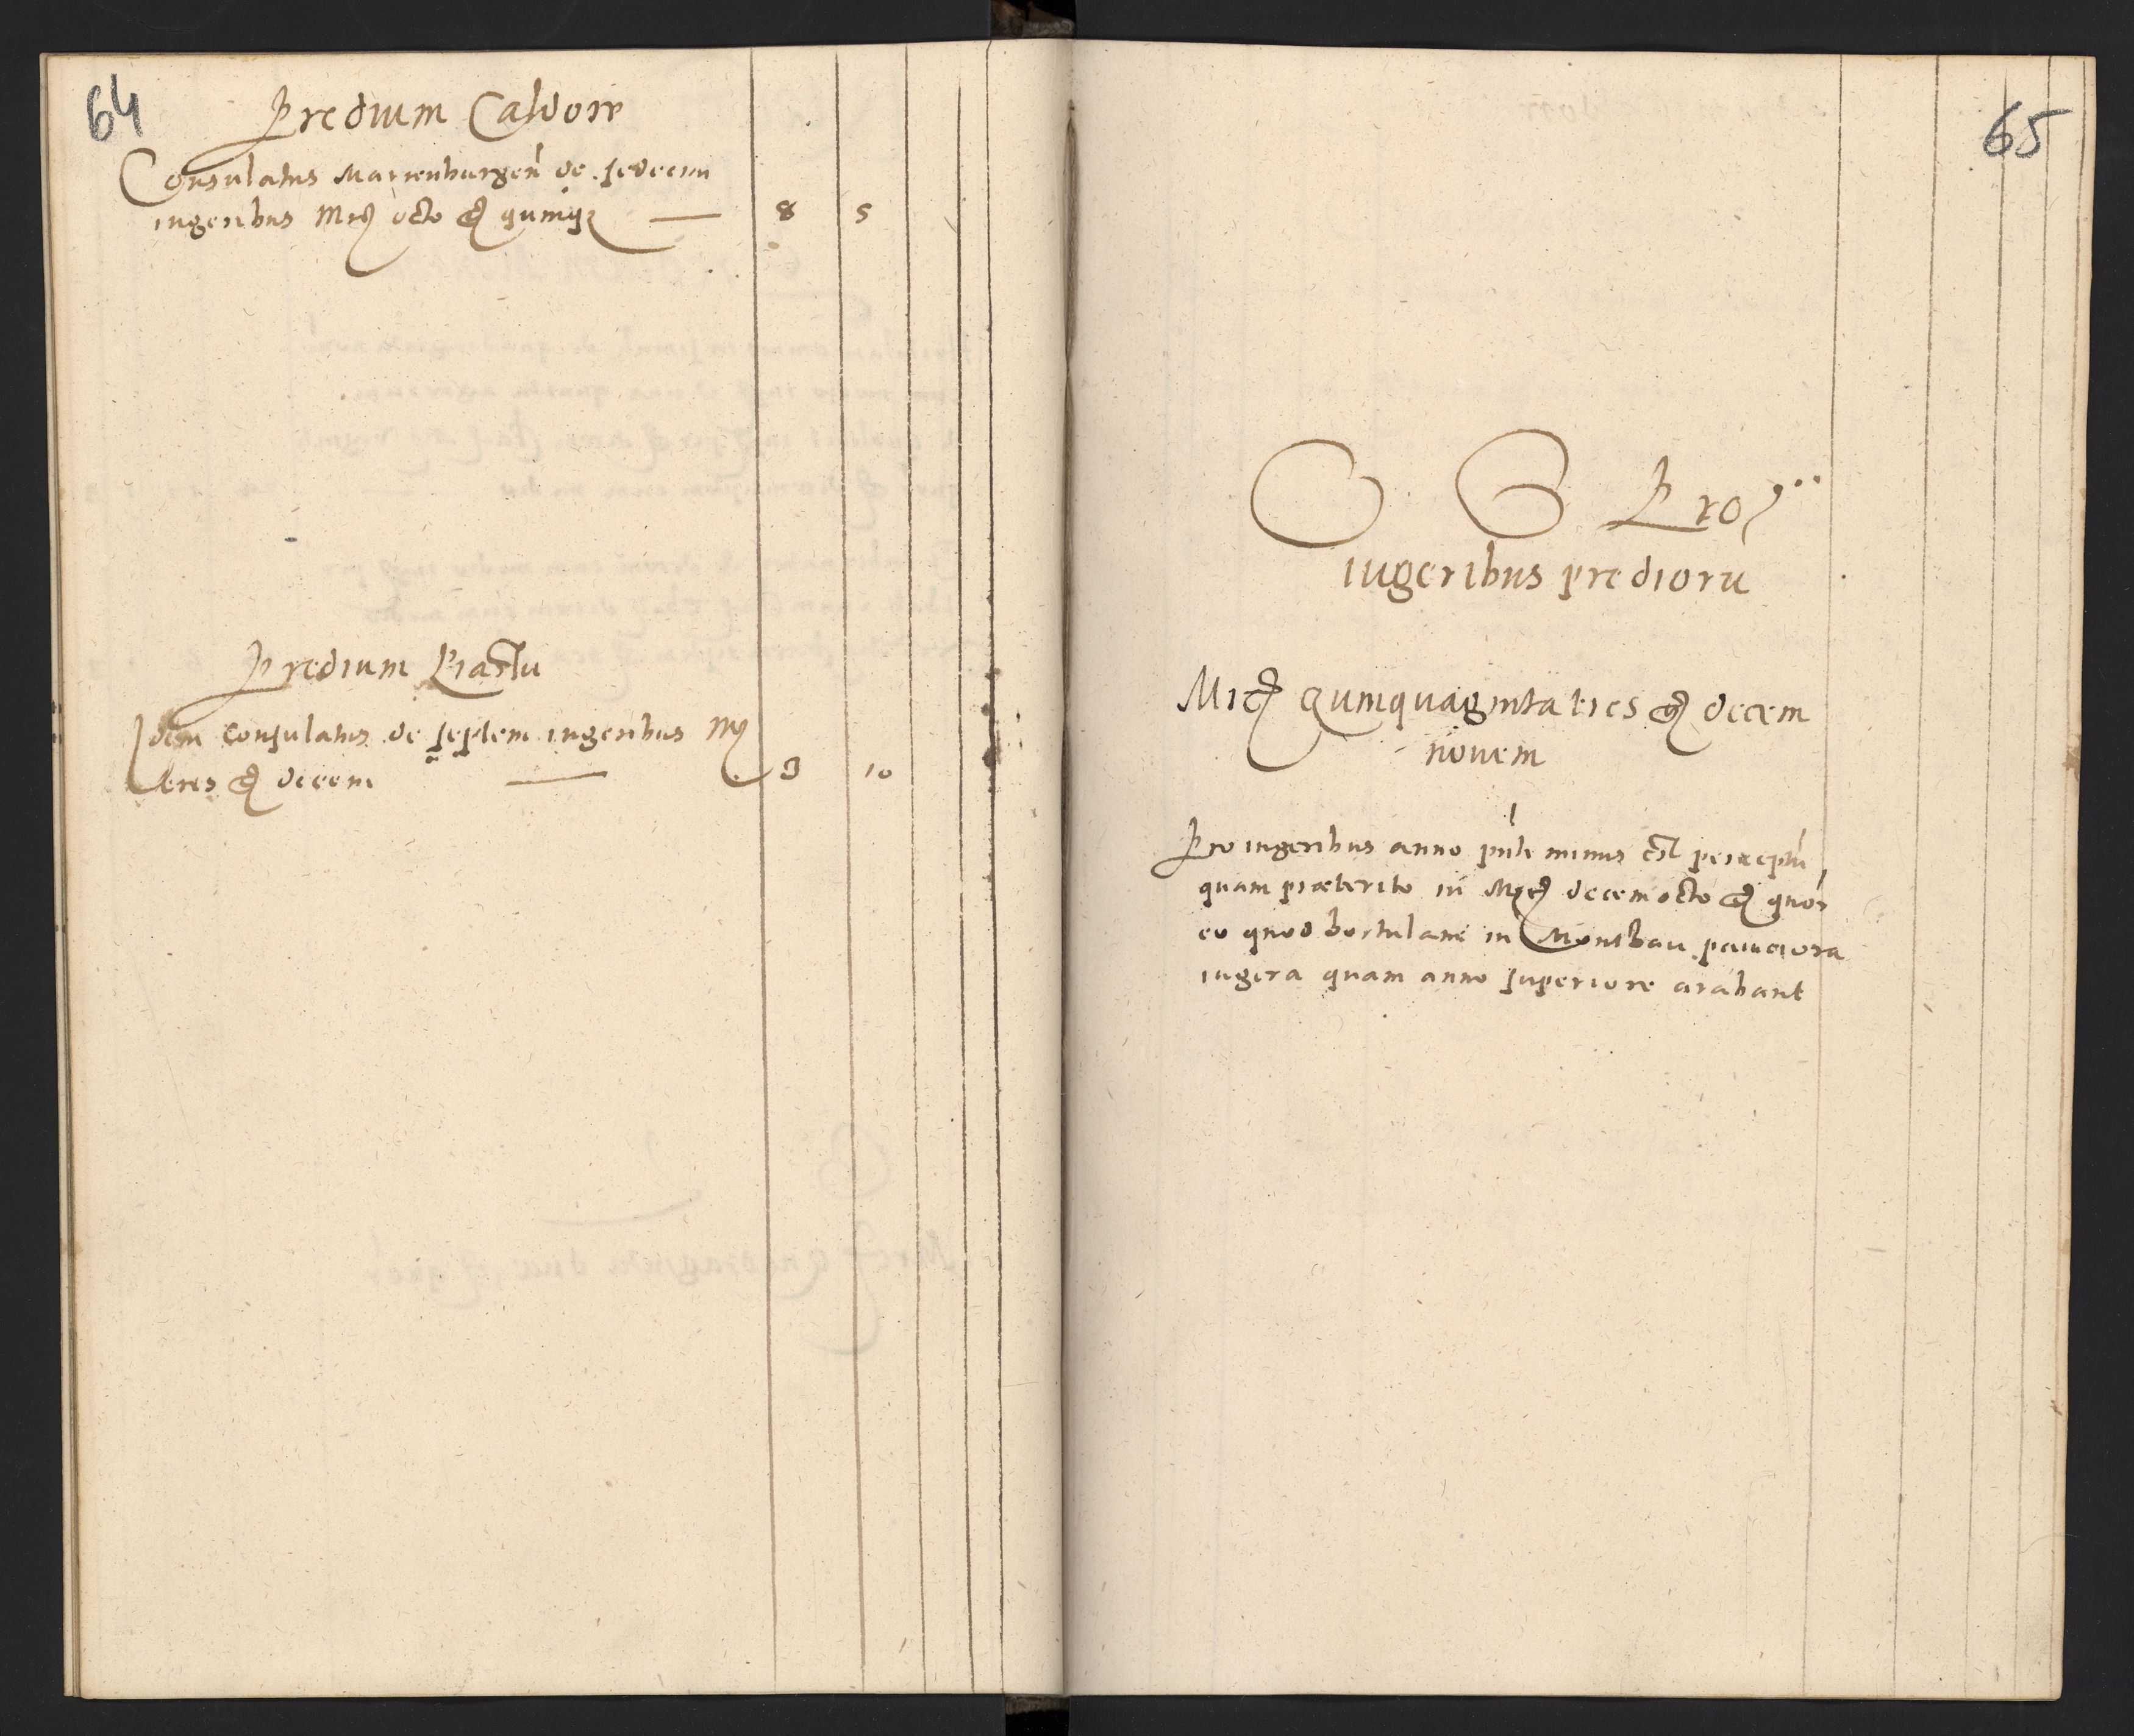 64
Predium Caldore
Consulatus Marienburgen̄ de sedecim
iugeribus Mrc̃ octo & quinq3 8 5
Predium Piastu
Idem consulatus de septem iugeribus Mr̃
tres & decem 3 10
65
Pro
iugeribus prediorū
Mrc̃ quinquaginta tres & decem
novem
Pro iugeribus anno pn̄ti minus est perceptū
quam præterito in Mrc̃ decem octo & quor̃
eo quod hortulani in Montbau pauciora
iugera quam anno superiore arabant